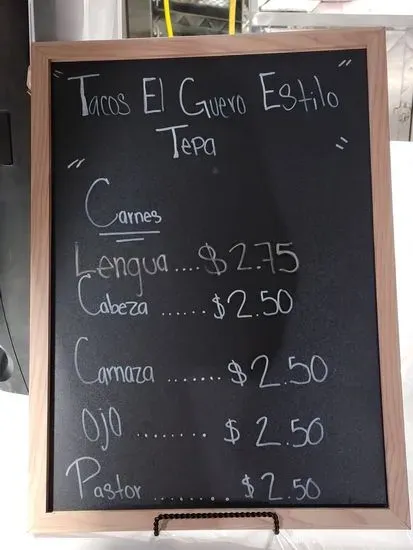 " Tacos El Guero Estilo "
" Tepa "
Carnes
Lengua....$2.75
Cabeza ......$2.50
Carnaza .......$2.50
Ojo ........ $ 2.50
Pastor ........ $2.50